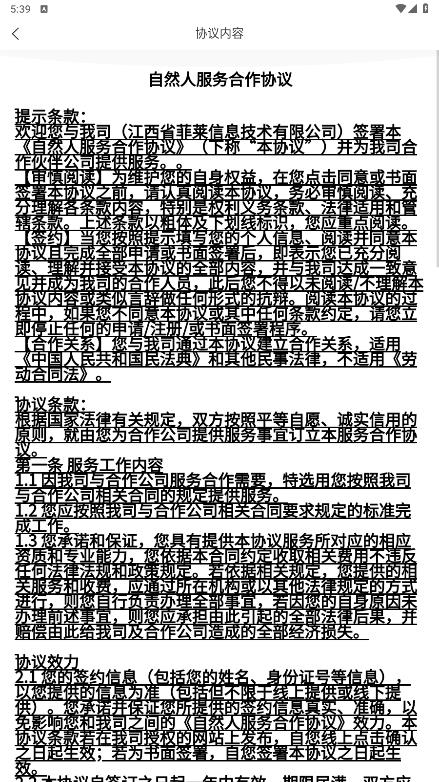 5:39
协议内容
自然人服务合作协议
提示条款：
欢迎您与我司（江西省菲莱信息技术有限公司）签署本
《自然人服务合作协议》（下称“本协议”）并为我司合
作伙伴公司提供服务。。
【审慎阅读】为维护您的自身权益，在您点击同意或书面
签署本协议之前，请认真阅读本协议，务必审慎阅读、充
分理解各条款内容，特别是权利义务条款、法律适用和管
辖条款。上述条款以粗体及下划线标识，您应重点阅读。
【签约】当您按照提示填写您的个人信息、阅读并同意本
协议且完成全部申请或书面签署后，即表示您已充分阅
读、理解并接受本协议的全部内容，并与我司达成一致意
见并成为我司的合作人员，此后您不得以未阅读/不理解本
协议内容或类似言辞做任何形式的抗辩。阅读本协议的过
程中，如果您不同意本协议或其中任何条款约定，请您立
即停止任何的申请/注册/或书面签署程序。
【合作关系】您与我司通过本协议建立合作关系，适用
《中国人民共和国民法典》和其他民事法律，不适用《劳
动合同法》。
协议条款：
根据国家法律有关规定，双方按照平等自愿、诚实信用的
原则，就由您为合作公司提供服务事宜订立本服务合作协
议。
第一条 服务工作内容
1.1 因我司与合作公司服务合作需要，特选用您按照我司
与合作公司相关合同的规定提供服务。
1.2 您应按照我司与合作公司相关合同要求规定的标准完
成工作。
1.3 您承诺和保证，您具有提供本协议服务所对应的相应
资质和专业能力，您依据本合同约定收取相关费用不违反
任何法律法规和政策规定。若依据相关规定，您提供的相
关服务和收费，应通过所在机构或以其他法律规定的方式
进行，则您自行负责办理全部事宜，若因您的自身原因未
办理前述事宜，则您应承担由此引起的全部法律后果，并
赔偿由此给我司及合作公司造成的全部经济损失。
协议效力
2.1 您的签约信息（包括您的姓名、身份证号等信息），
以您提供的信息为准（包括但不限于线上提供或线下提
供）。您承诺并保证您所提供的签约信息真实、准确，以
免影响您和我司之间的《自然人服务合作协议》效力。本
协议条款若在我司授权的网站上发布，自您线上点击确认
之日起生效；若为书面签署，自您签署本协议之日起生
效。
2.2 本协议自签订之日起一年内有效，期限届满，双方应